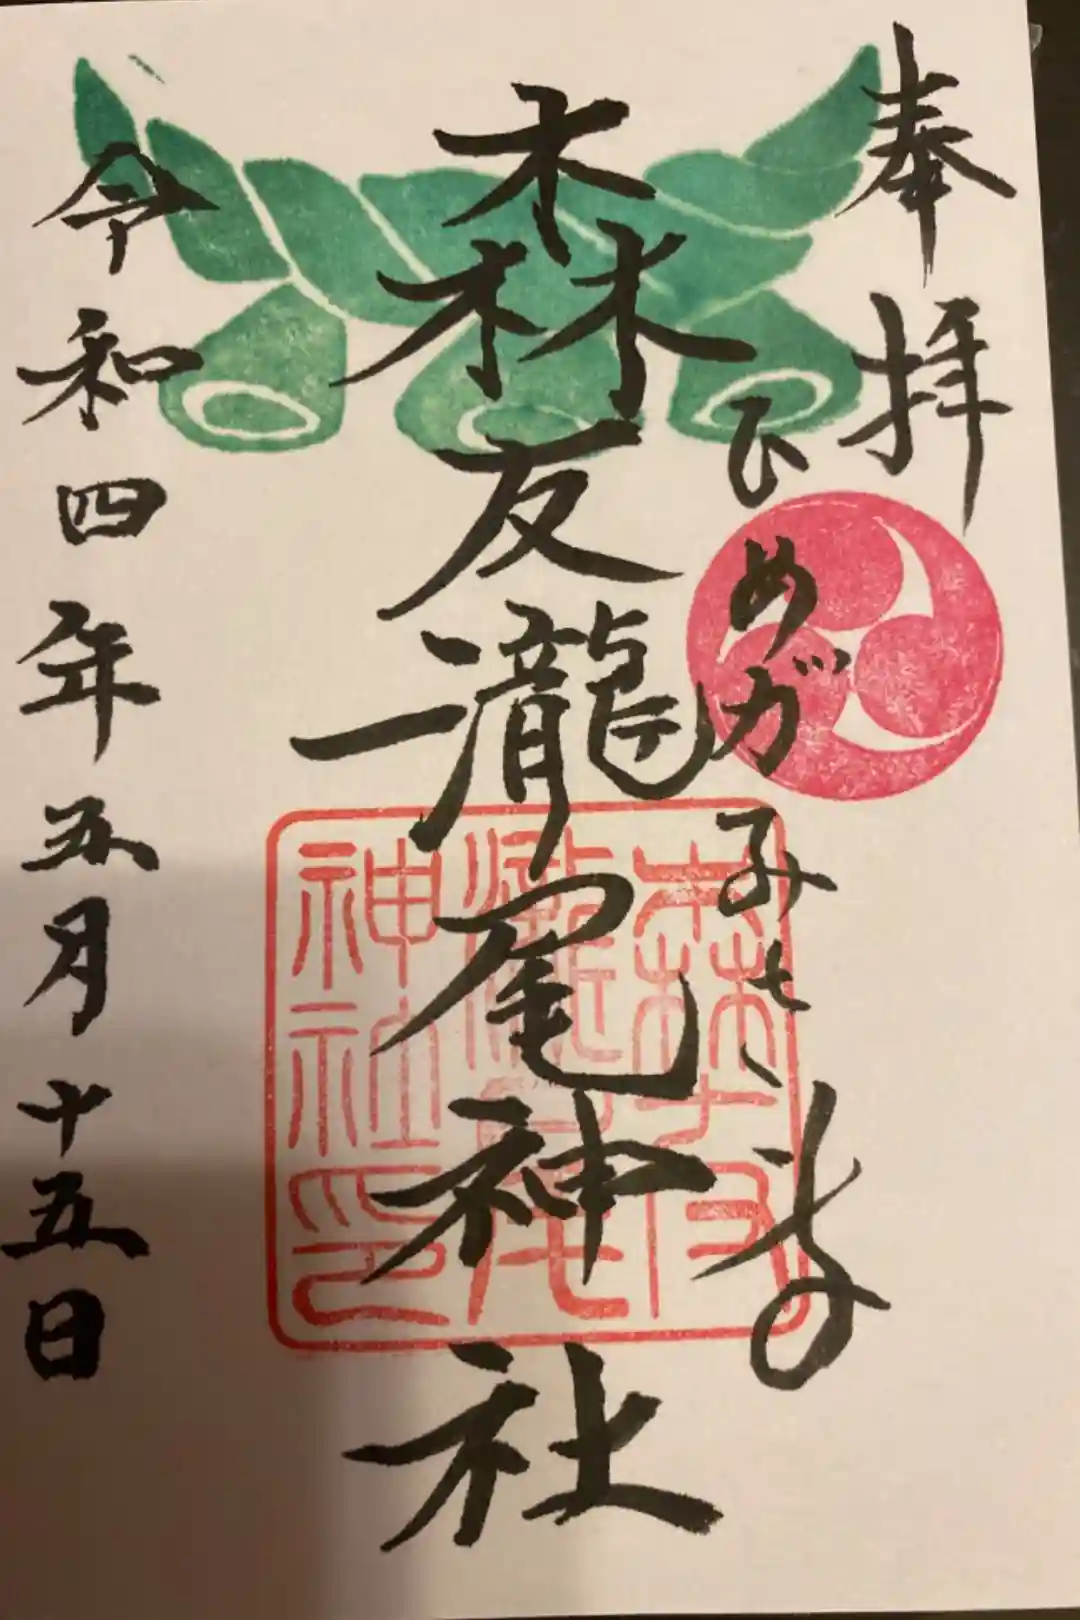 奉拝
ひめガみ
森友瀧尾神社
令和四年五月十五日
森友
瀧尾
神社印